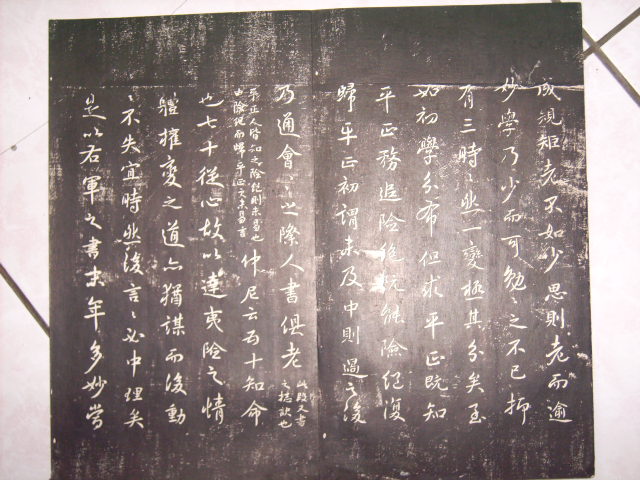 成規矩老不如少思則老而逾
妙學乃少而可勉〻之不已抑
有三時〻然一變極其分矣至
如初學分布但求平正既知
平正務追險絕既能險絕復
歸平正初謂未及中則過之後
乃通會〻之際人書俱老
此段又書
之捴訣也
平正人皆知之險絕則未易也
由險絕而歸平正又未易言
仲尼云五十知命
也七十從心故以達夷險之情
體權變之道亦猶謀而後動
〻不失宜時然後言〻必中理矣
是以右軍之書末年多妙當